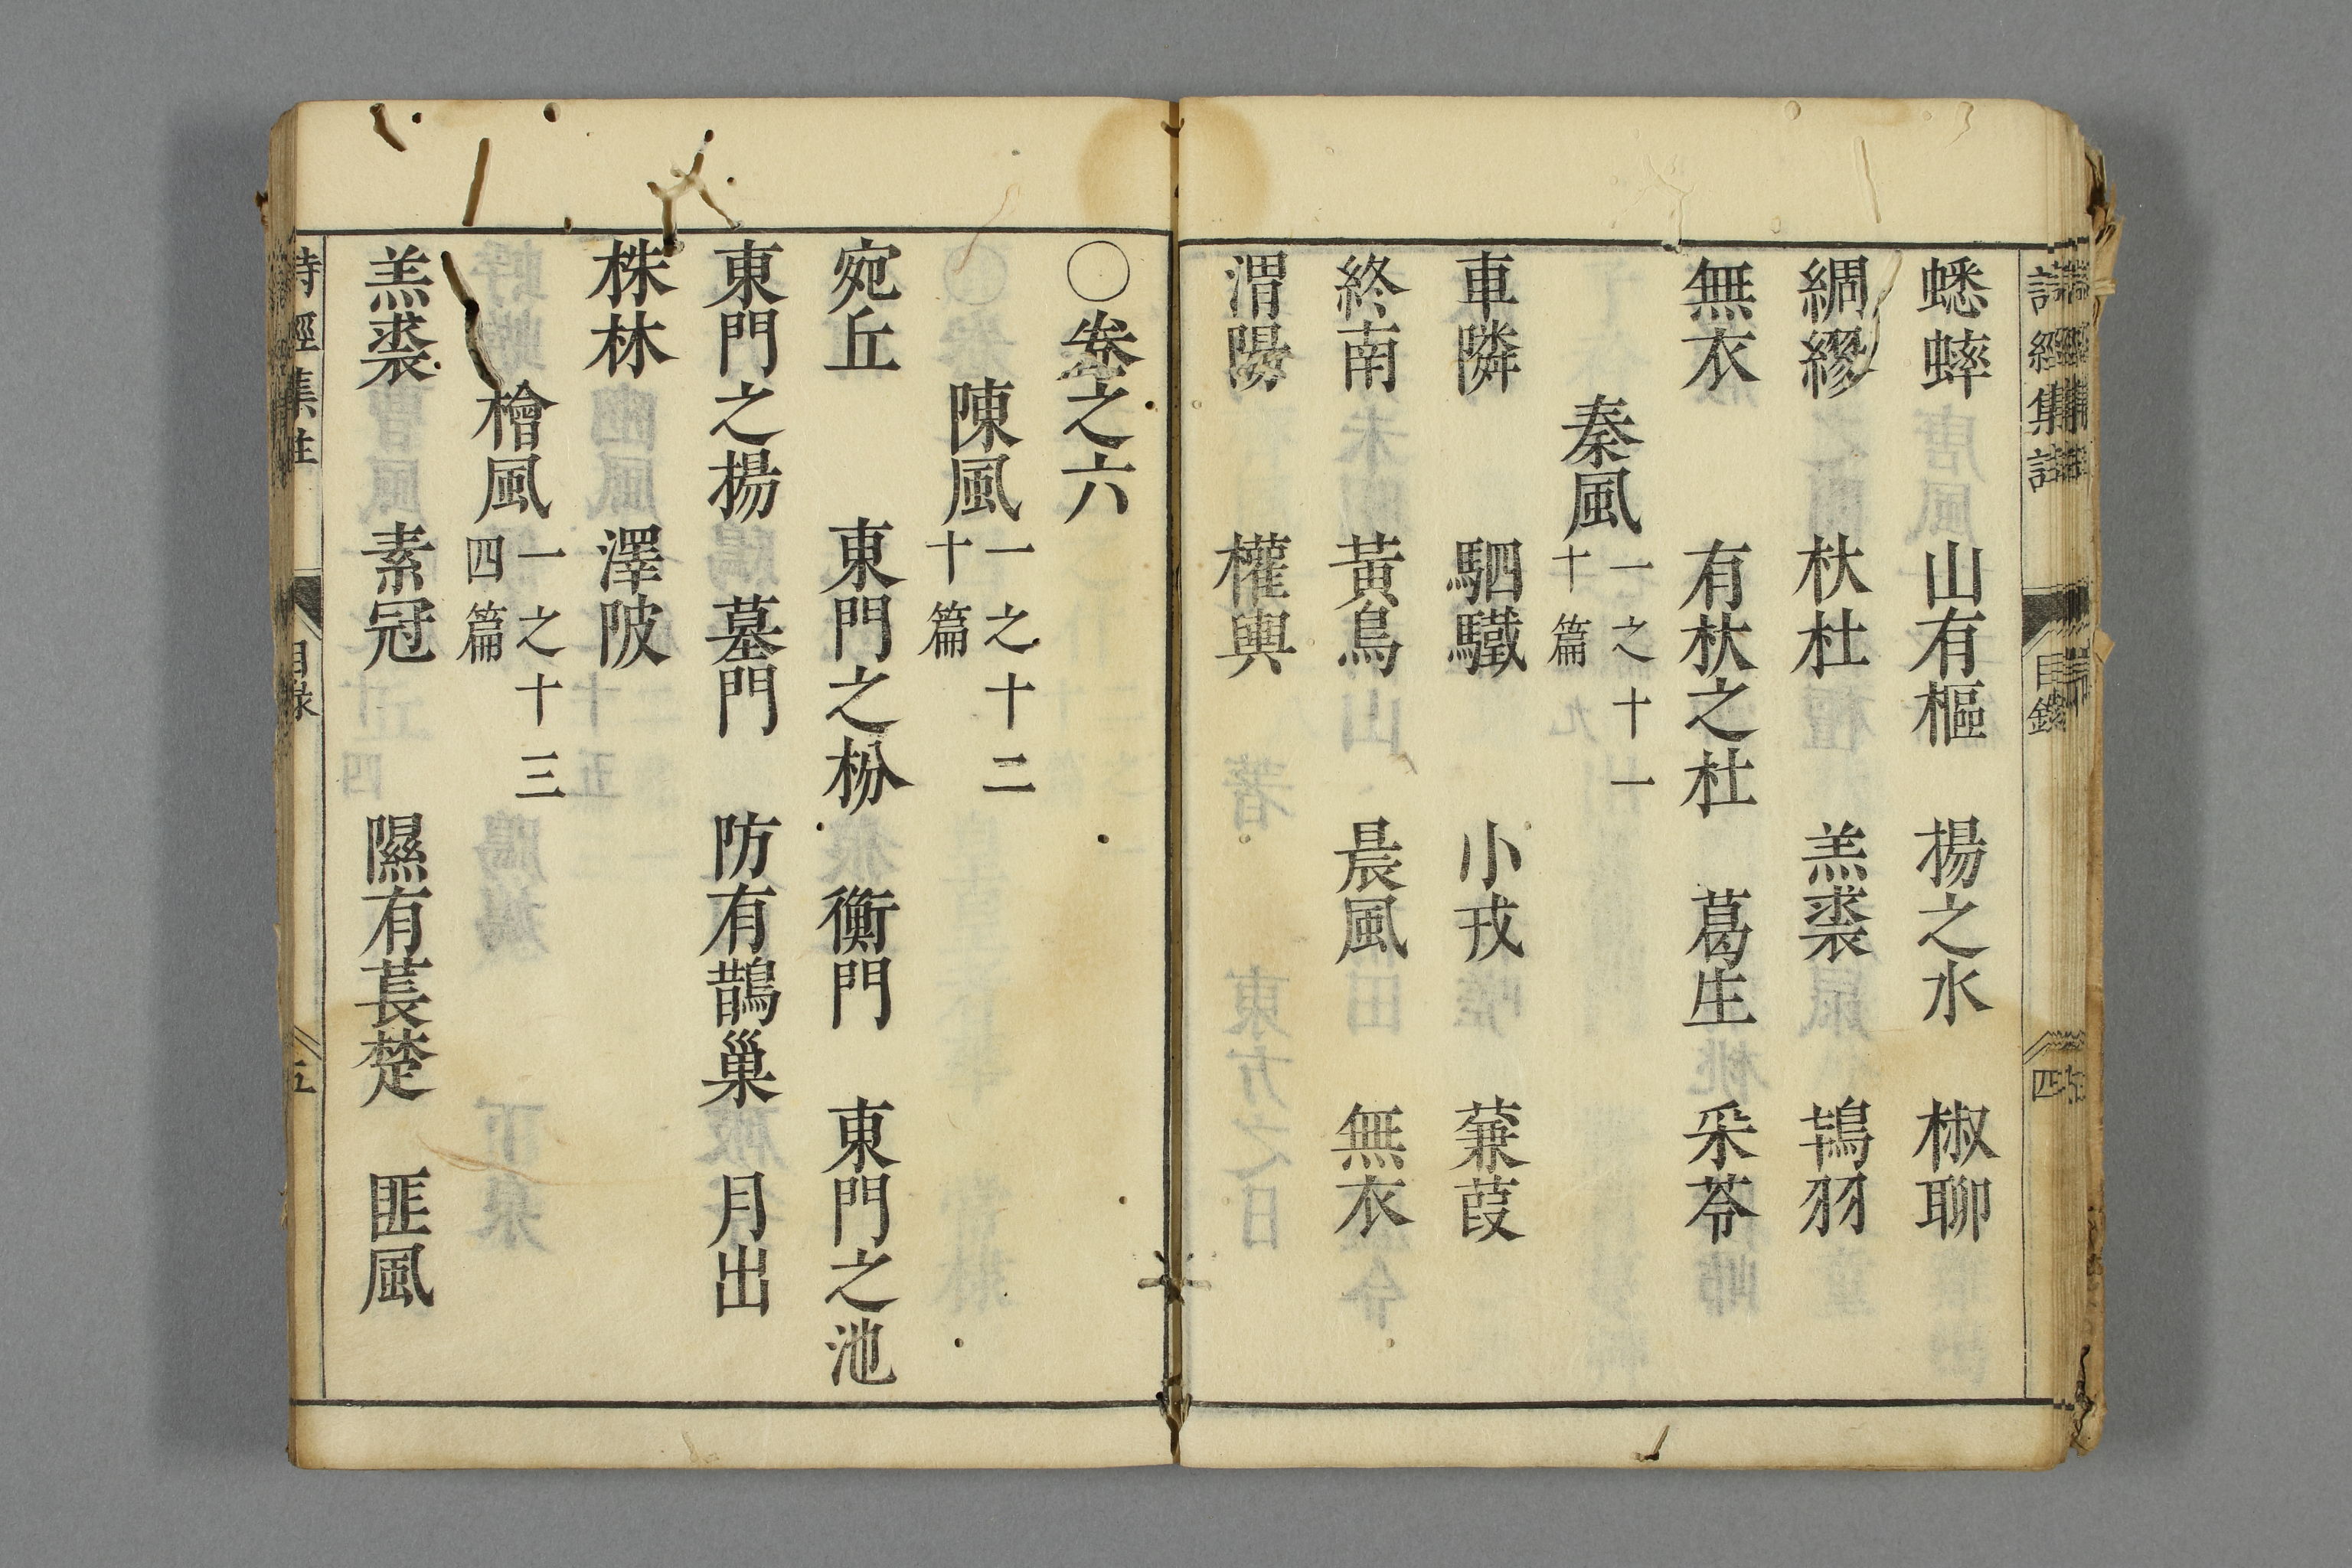 詩經集註 目錄 四
蟋蟀 山有樞 揚之水 椒聊
綢繆 杕杜 羔裘 鴇羽
無衣 有杕之杜 葛生 采苓
秦風 一之十一 十篇
車隣 駟驖 小戎 蒹葭
終南 黃鳥 晨風 無衣
渭陽 權輿
〇卷之六
陳風 一之十二 十篇
宛丘 東門之枌 衡門 東門之池
東門之揚 墓門 防有鵲巢 月出
株林 澤陂
檜風 一之十三 四篇
羔裘 素冠 隰有萇楚 匪風
詩經集註 目錄 五